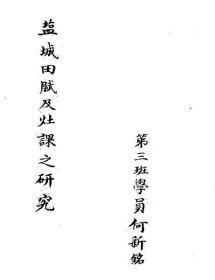 盐城田賦及灶課之研究
第三班學員何新銘